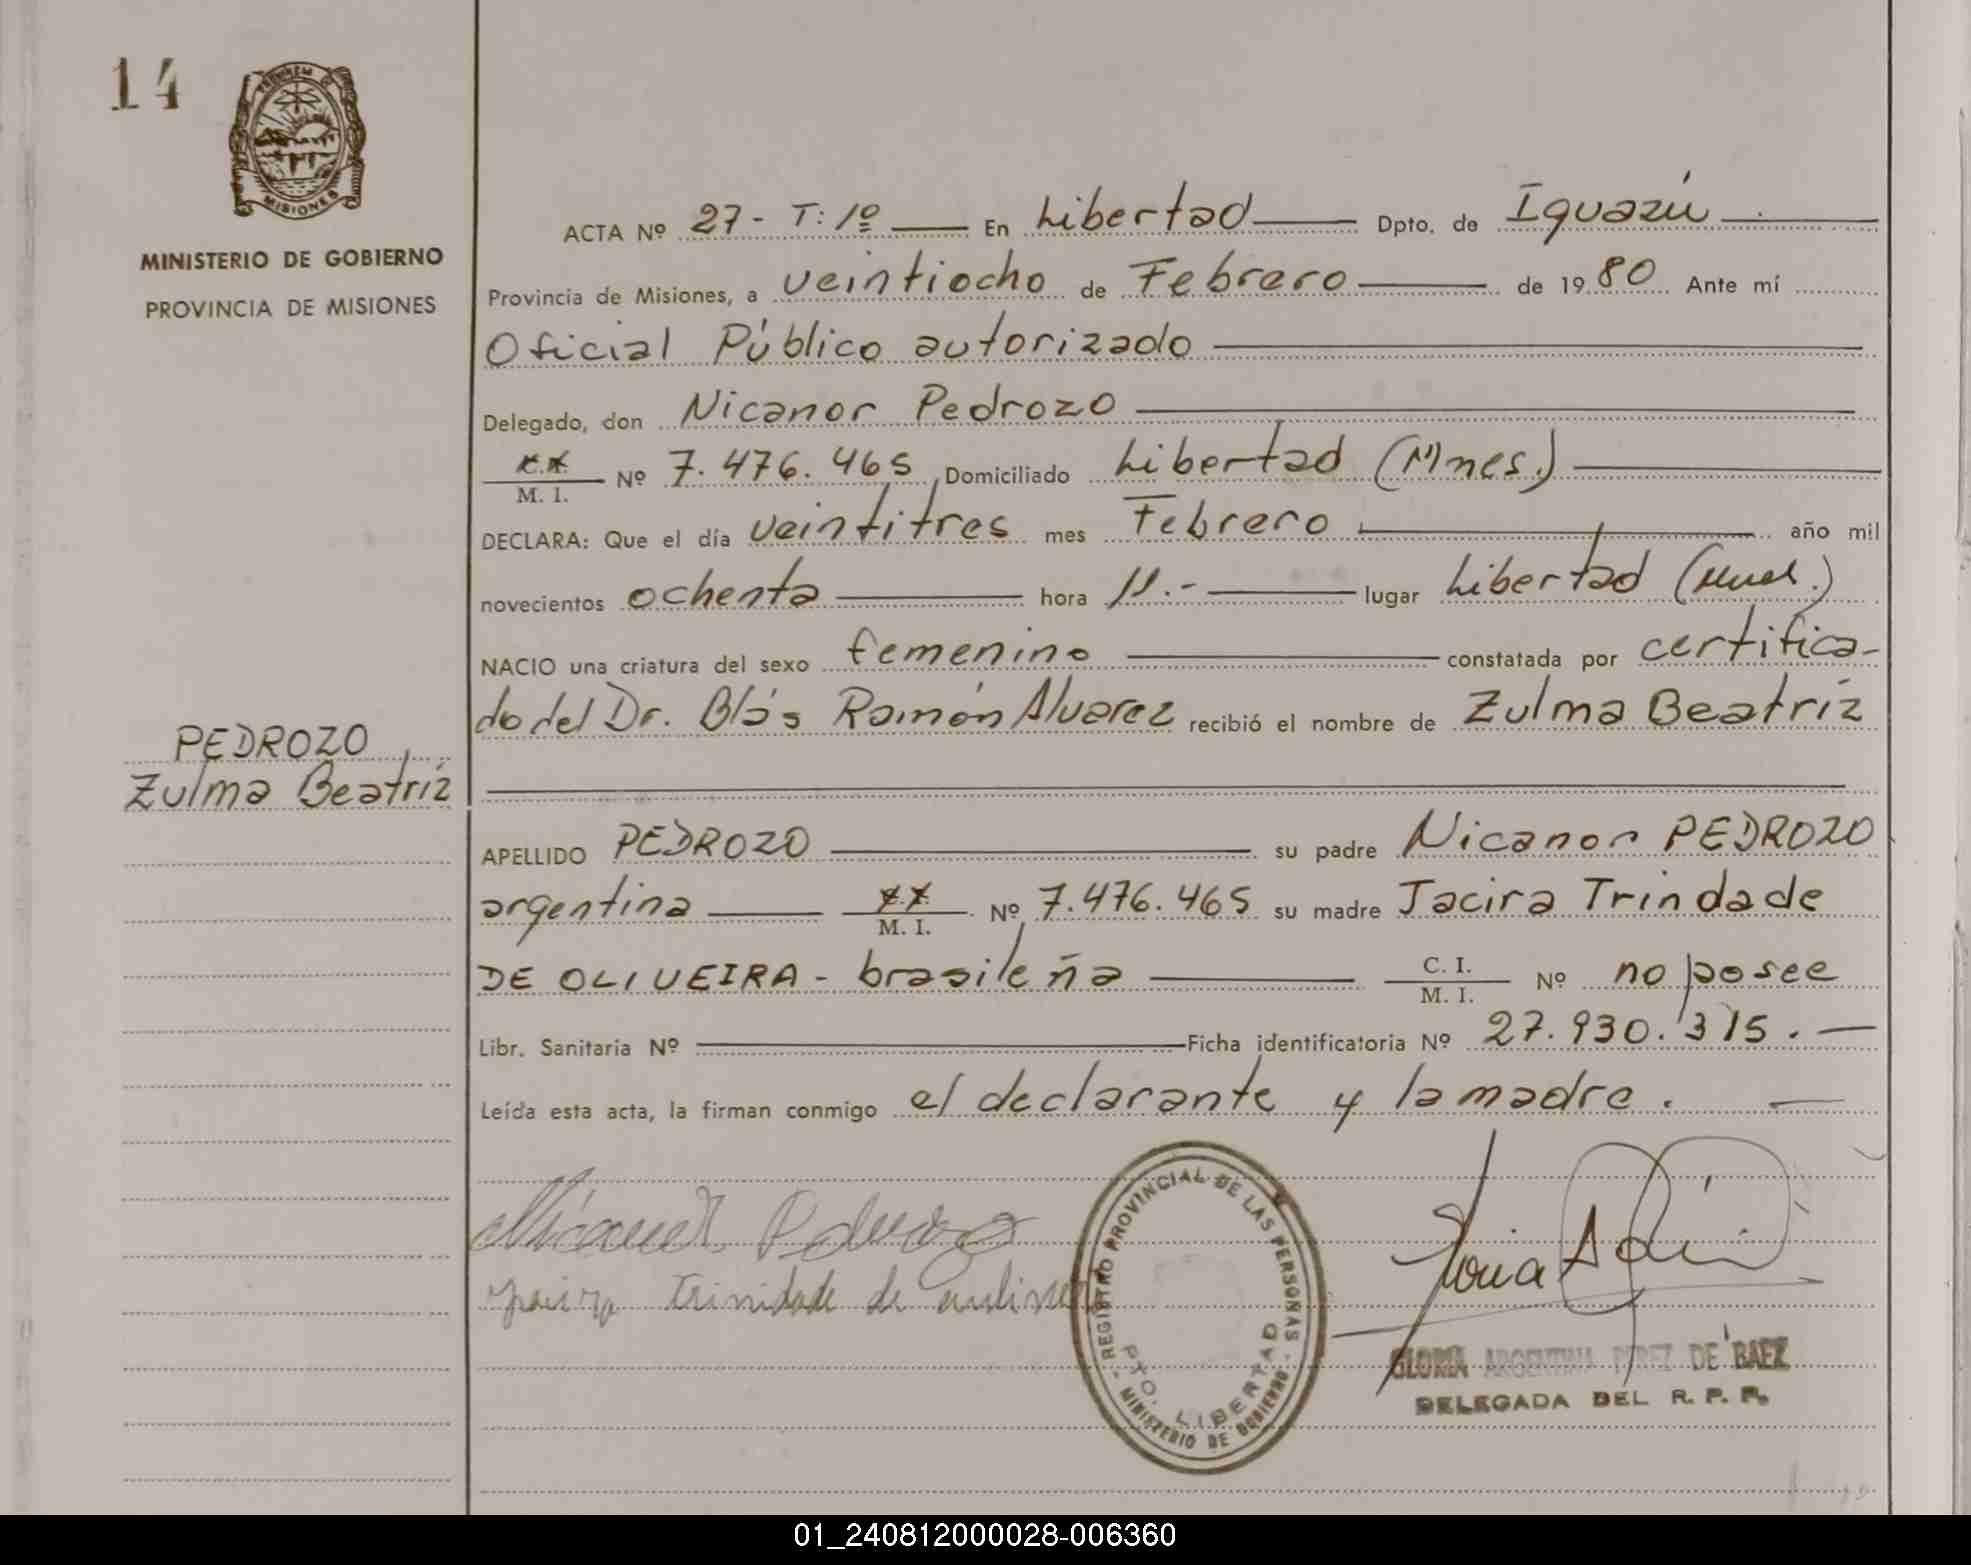 14
MISIONES
MINISTERIO DE GOBIERNO
PROVINCIA DE MISIONES
ACTA Nº 27 - T: 1º En Libertad Dpto. de Iguazú
Provincia de Misiones, a veintiocho de Febrero de 1980 Ante mí
Oficial Público autorizado
Delegado, don Nicanor Pedrozo
M. I. Nº 7.476.465 Domiciliado Libertad (Mnes.)
DECLARA: Que el día veintitres mes Febrero año mil
novecientos ochenta hora 11.- lugar Libertad (Mnes.)
NACIO una criatura del sexo femenino constatada por certifica-
do del Dr. Blás Ramón Alvarez recibió el nombre de Zulma Beatríz
PEDROZO
Zulma Beatríz
APELLIDO PEDROZO su padre Nicanor PEDROZO
argentina M. I. Nº 7.476.465 su madre Jacira Trindade
DE OLIVEIRA - brasileña C. I. M. I. Nº no posee
Libr. Sanitaria Nº Ficha identificatoria Nº 27.930.315.-
Leída esta acta, la firman conmigo el declarante y la madre.
REGISTRO PROVINCIAL DE LAS PERSONAS
PTO. LIBERTAD
MINISTERIO DE GOBIERNO
GLORIA ARGENTINA PEREZ DE BAEZ
DELEGADA DEL R. P. P.
01_240812000028-006360